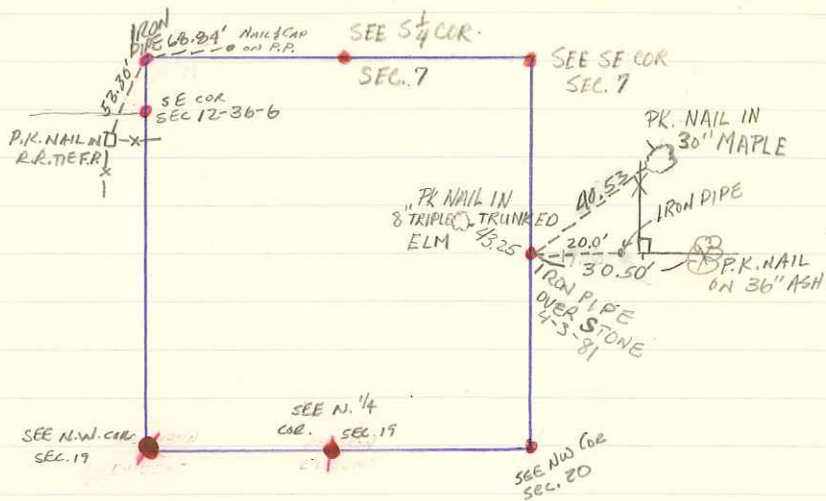 IRON
PIPE 68.84' NAIL & CAP
ON P.P.
53.30'
SEE S 1/4 COR.
SEC. 7
SEE SE COR
SEC. 7
SE COR
SEC 12-36-6
P.K. NAIL IN
R.R. TIE F.P.
PK. NAIL IN
30" MAPLE
40.53
IRON PIPE
PK NAIL IN
8" TRIPLE TRUNKED
ELM 43.25
20.0'
30.50'
P.K. NAIL
ON 36" ASH
IRON PIPE
OVER STONE
4-3-81
SEE N.W. COR.
SEC. 19
SEE N. 1/4
COR. SEC. 19
SEE NW COR
SEC. 20